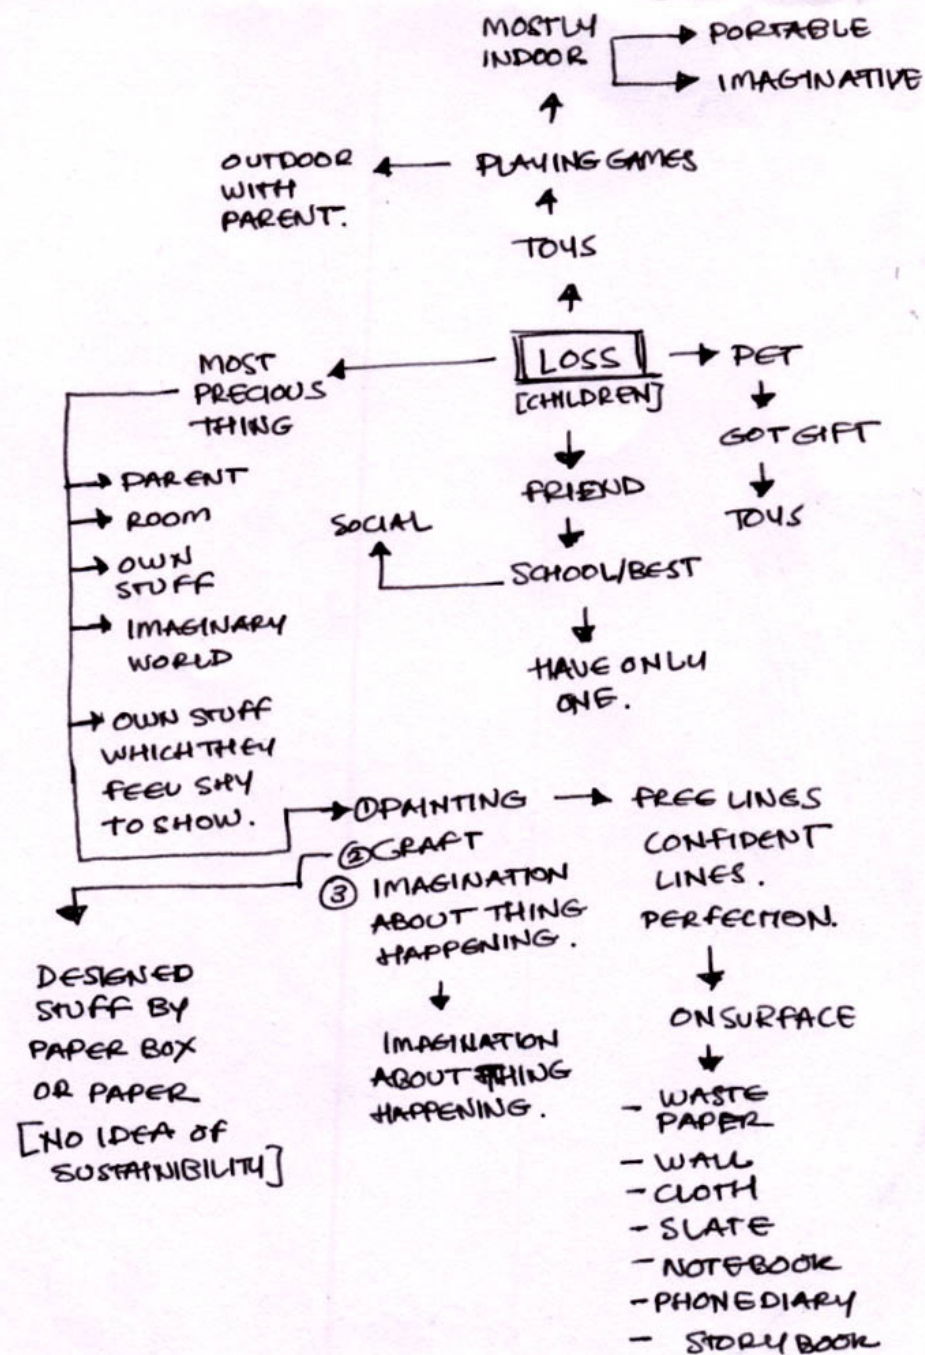 MOSTLY
INDOOR
PORTABLE
IMAGINATIVE
OUTDOOR
WITH
PARENT.
PLAYING GAMES
TOYS
MOST
PRECIOUS
THING
LOSS
[CHILDREN]
PET
GOT GIFT
TOYS
FRIEND
SOCIAL
SCHOOL/BEST
HAVE ONLY
ONE.
PARENT
ROOM
OWN
STUFF
IMAGINARY
WORLD
OWN STUFF
WHICH THEY
FEEL SHY
TO SHOW.
① PAINTING
② CRAFT
③ IMAGINATION
ABOUT THING
HAPPENING.
IMAGINATION
ABOUT THING
HAPPENING.
FREE LINES
CONFIDENT
LINES.
PERFECTION.
ON SURFACE
- WASTE
PAPER
- WALL
- CLOTH
- SLATE
- NOTEBOOK
- PHONE DIARY
- STORY BOOK
DESIGNED
STUFF BY
PAPER BOX
OR PAPER
[NO IDEA OF
SUSTAINIBILITY]